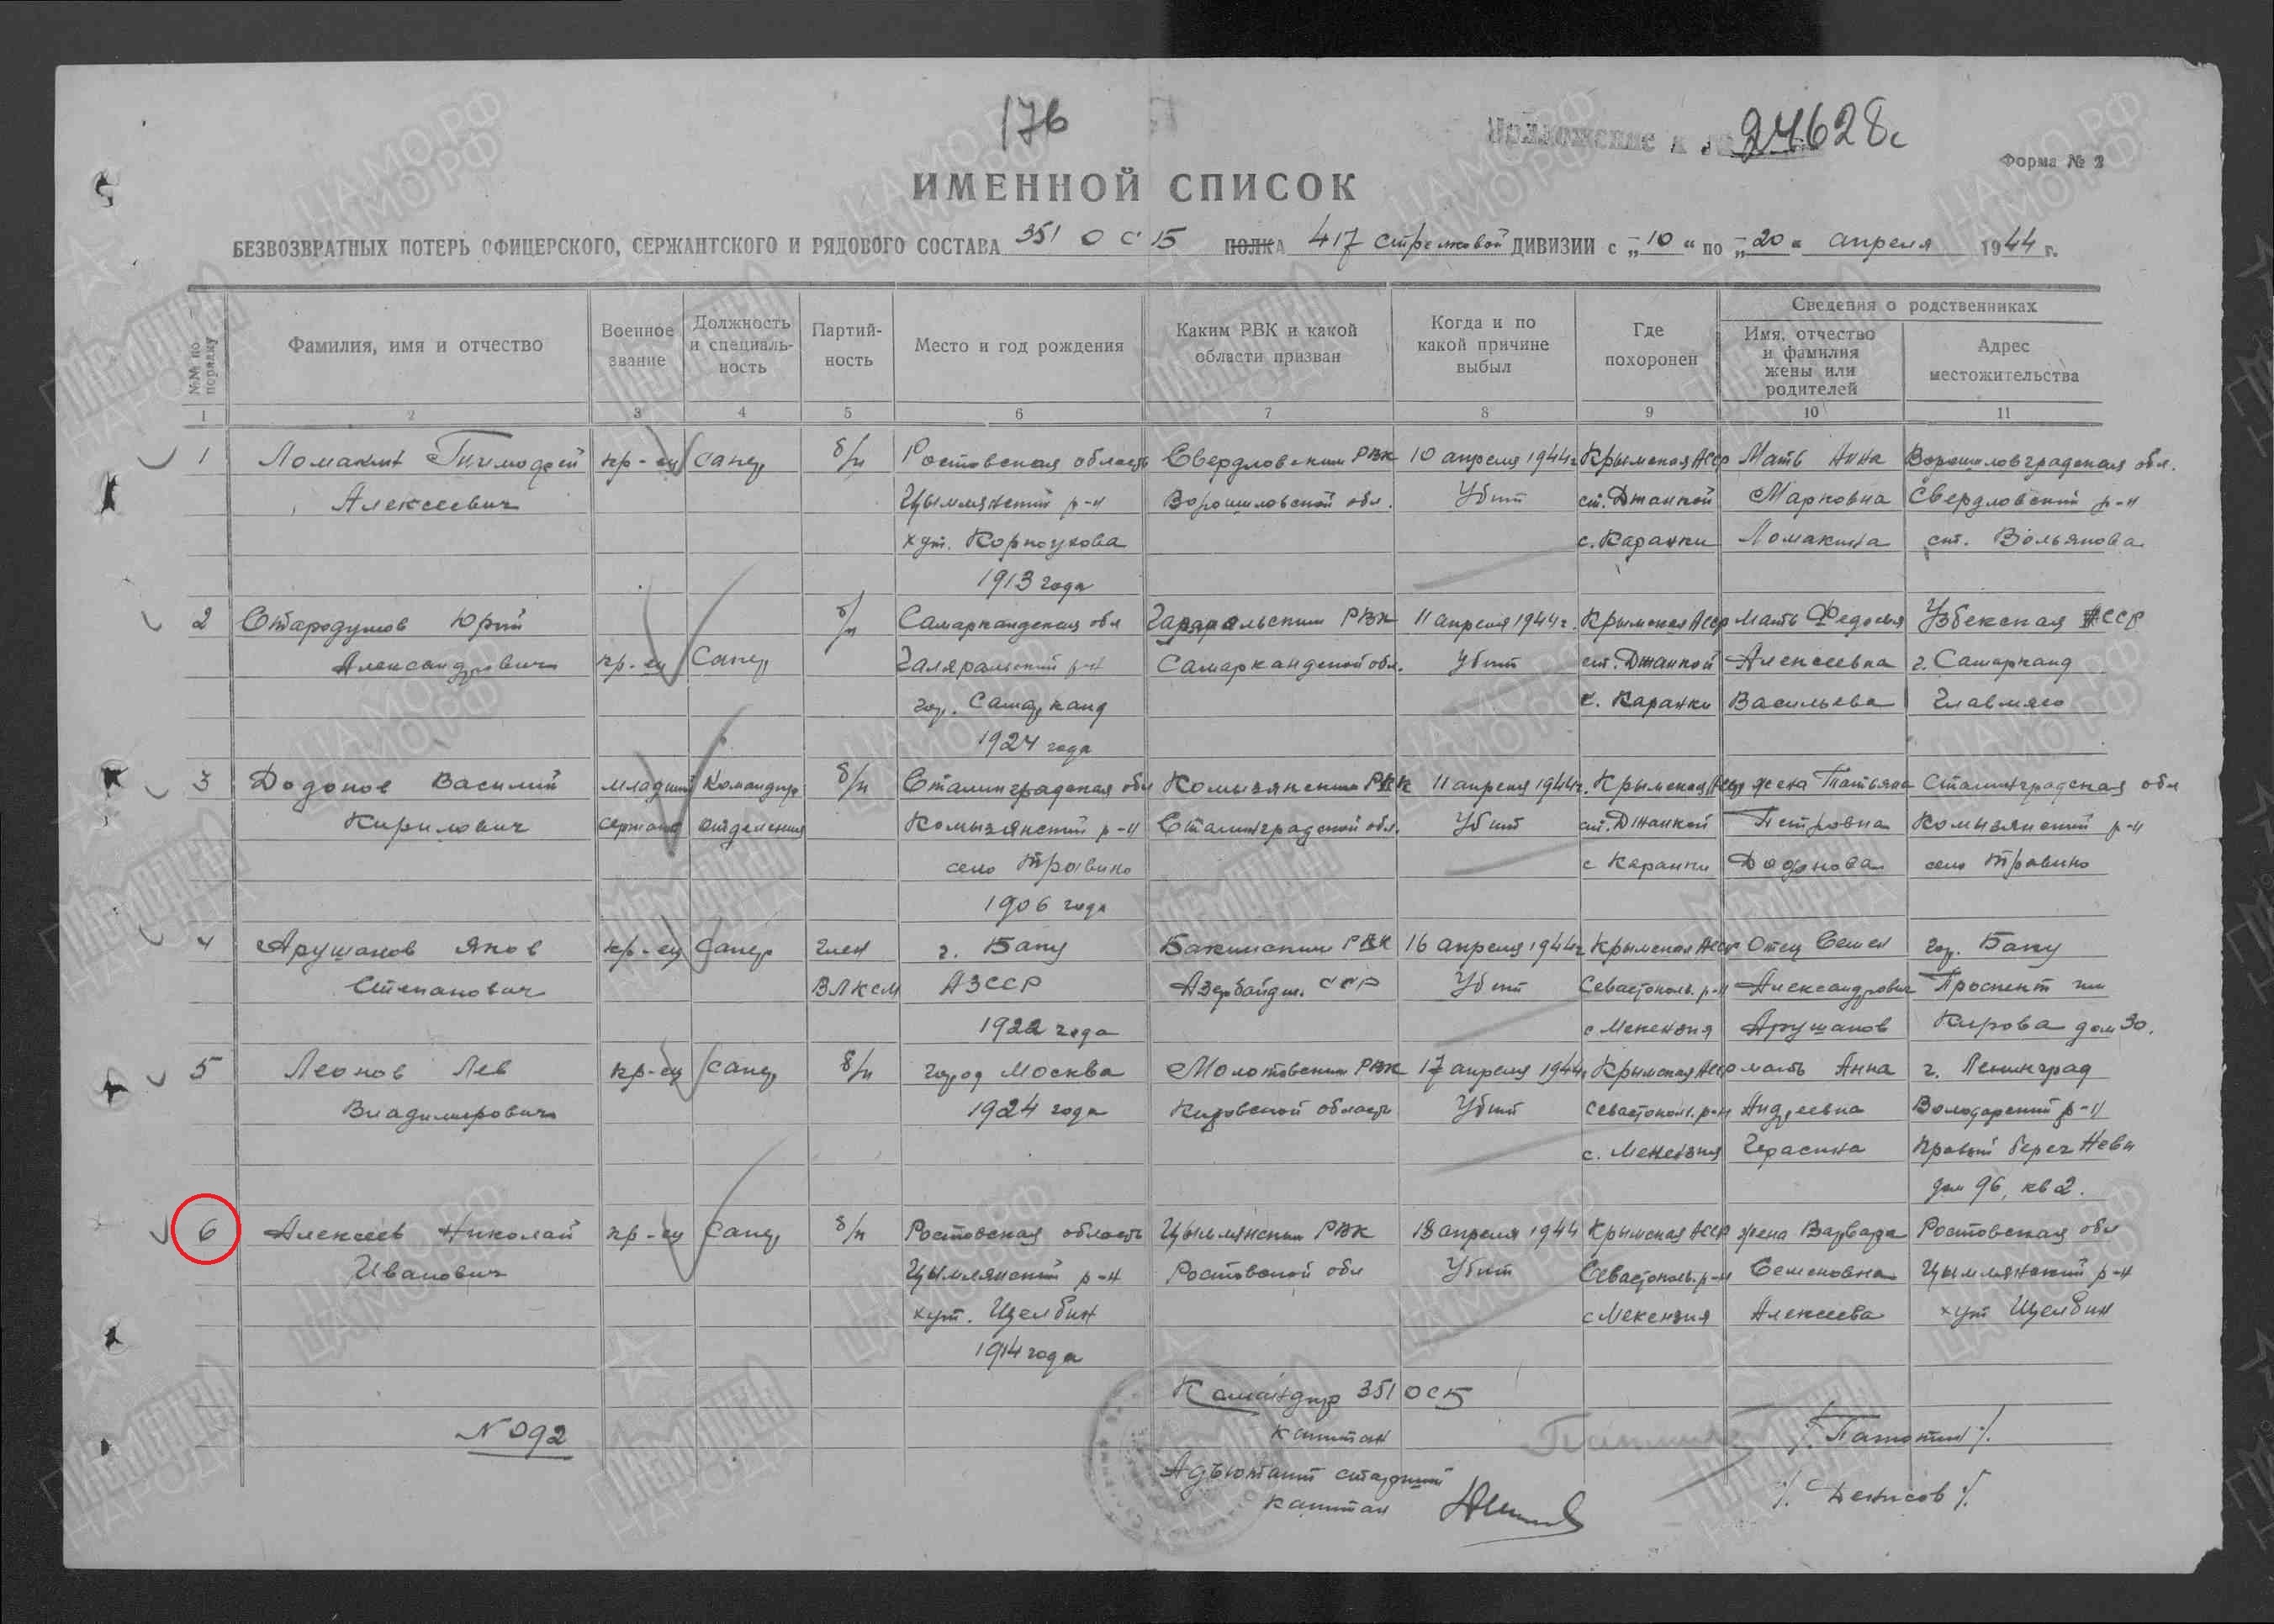 176
Приложение к № 24628с
Форма № 2
ИМЕННОЙ СПИСОК
БЕЗВОЗВРАТНЫХ ПОТЕРЬ ОФИЦЕРСКОГО, СЕРЖАНТСКОГО И РЯДОВОГО СОСТАВА 351 О С Б ПОЛКА 417 стрелковой ДИВИЗИИ с „10“ по „20“ апреля 1944 г.
№№ по порядку
Фамилия, имя и отчество
Военное звание
Должность и специаль-ность
Партий-ность
Место и год рождения
Каким РВК и какой области призван
Когда и по какой причине выбыл
Где похоронен
Сведения о родственниках
Имя, отчество и фамилия жены или родителей
Адрес местожительства
1 2 3 4 5 6 7 8 9 10 11
1 Ломакин Тимофей кр-ец сапер б/п Ростовская область Свердловским РВК 10 апреля 1944г. Крымская АССР Мать Анна Ворошиловградская обл.
Алексеевич Цымлянский р-н Ворошиловской обл. Убит ст. Джанкой Марковна Свердловский р-н
хут. Корноухова с. Каранки Ломакина ст. Вольянова
1913 года
2 Стародумов Юрий б/п Самаркандская обл РВК 11 апреля 1944г. Крымская АССР мать Федосья Узбекская ССР
Александрович кр-ец сапер Галяральский р-н Самаркандской обл. Убит ст. Джанкой Алексеевна г. Самарканд
гор. Самарканд с. Каранки Васильева Главмясо
1924 года
3 Додонов Василий младший командир б/п Сталинградская обл Комызянским РВК 11 апреля 1944г. Крымская АССР жена Татьяна Сталинградская обл
Кирилович сержант отделения Комызянский р-н Сталинградской обл. Убит ст. Джанкой Петровна Комызянский р-н
село Травино с Каранки Додонова село Травино
1906 года
4 Арушанов Яков кр-ец сапер член г. Баку Бакинским РВК 16 апреля 1944г Крымская АССР Отец Семен гор. Баку
Степанович ВЛКСМ АЗССР Азербайдж. ССР Убит Севастополь. р-н Александрович Проспект им
1922 года с Мекензия Арушанов Кирова дом 30.
5 Леонов Лев кр-ец сапер б/п город Москва Молотовским РВК 17 апреля 1944г Крымская АССР мать Анна г. Ленинград
Владимирович 1924 года Кировской область Убит Севастопол. р-н Андреевна Володарский р-н
с. Мекензия Герасина Правый берег Невы
дом 96, кв 2.
6 Алексеев Николай кр-ец сапер б/п Ростовская область Цымлянским РВК 18 апреля 1944 Крымская АССР жена Варвара Ростовская обл
Иванович Цымлянский р-н Ростовской обл Убит Севастополь. р-н Семеновна Цымлянский р-н
хут. Щелбин с Мекензия Алексеева хут Щелбин
1914 года
Командир 351 ОСБ
N 092 капитан
Адъютант старший
капитан /. Денисов /.
ЦАМО.РФ
ПАМЯТЬ НАРОДА